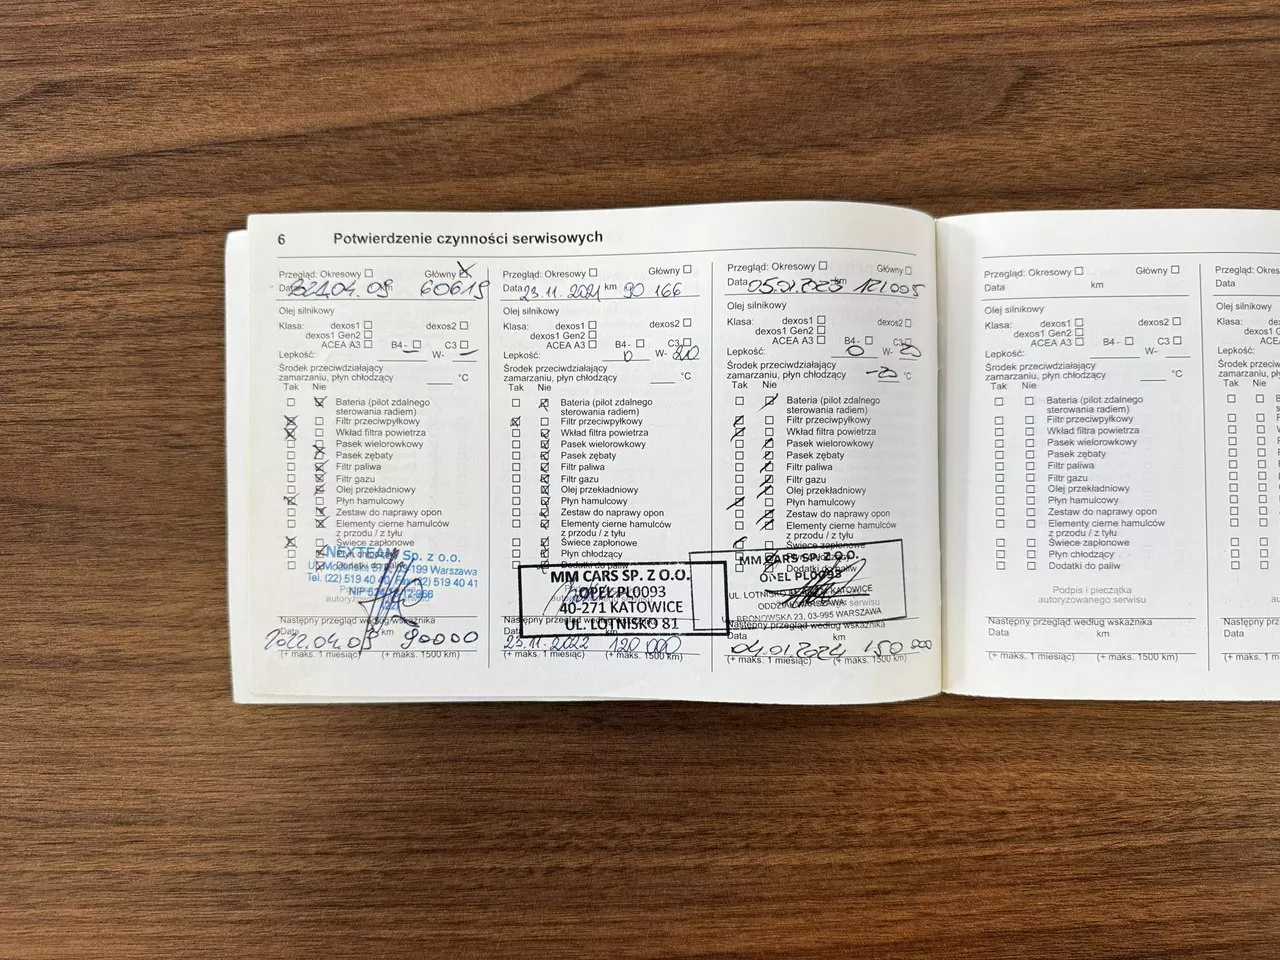 6 Potwierdzenie czynności serwisowych
Przegląd: Okresowy Główny
Data km 60619
Olej silnikowy
Klasa: dexos1 dexos2
dexos1 Gen2
ACEA A3 B4 - C3
Lepkość: W-
Środek przeciwdziałający
zamarzaniu, płyn chłodzący °C
Tak Nie
Bateria (pilot zdalnego
sterowania radiem)
Filtr przeciwpyłkowy
Wkład filtra powietrza
Pasek wielorowkowy
Pasek zębaty
Filtr paliwa
Filtr gazu
Olej przekładniowy
Płyn hamulcowy
Zestaw do naprawy opon
Elementy cierne hamulców
z przodu / z tyłu
Świece zapłonowe
NEXTEAM Sp. z o.o.
199 Warszawa
Tel. (22) 519 40 40, Fax (22) 519 40 41
Następny przegląd według wskaźnika
Data km
2022.04.09 90000
(+ maks. 1 miesiąc) (+ maks. 1500 km)
Przegląd: Okresowy Główny
Data 23.11.2021 km 90 166
Olej silnikowy
Klasa: dexos1 dexos2
dexos1 Gen2
ACEA A3 B4 - C3
Lepkość: 0 W- 20
Środek przeciwdziałający
zamarzaniu, płyn chłodzący °C
Tak Nie
Bateria (pilot zdalnego
sterowania radiem)
Filtr przeciwpyłkowy
Wkład filtra powietrza
Pasek wielorowkowy
Pasek zębaty
Filtr paliwa
Filtr gazu
Olej przekładniowy
Płyn hamulcowy
Zestaw do naprawy opon
Elementy cierne hamulców
z przodu / z tyłu
Świece zapłonowe
Płyn chłodzący
Dodatki do paliw
MM CARS SP. Z O.O.
OPEL PL0093
40-271 KATOWICE
UL. LOTNISKO 81
Następny przegląd według wskaźnika
23.11.2022 120 000
(+ maks. 1 miesiąc) (+ maks. 1500 km)
Przegląd: Okresowy Główny
Data 05.01.2023 km 121005
Olej silnikowy
Klasa: dexos1 dexos2
dexos1 Gen2
ACEA A3 B4 - C3
Lepkość: 0 W- 20
Środek przeciwdziałający
zamarzaniu, płyn chłodzący °C
Tak Nie
Bateria (pilot zdalnego
sterowania radiem)
Filtr przeciwpyłkowy
Wkład filtra powietrza
Pasek wielorowkowy
Pasek zębaty
Filtr paliwa
Filtr gazu
Olej przekładniowy
Płyn hamulcowy
Zestaw do naprawy opon
Elementy cierne hamulców
z przodu / z tyłu
Świece zapłonowe
Dodatki do paliw
MM CARS SP. Z O.O.
OPEL PL0093
UL. LOTNISKO KATOWICE
ODDZIAŁ WARSZAWA
23, 03-995 WARSZAWA
Następny przegląd według wskaźnika
Data km
04.01.2024 150 000
(+ maks. 1 miesiąc) (+ maks. 1500 km)
Przegląd: Okresowy Główny
Data km
Olej silnikowy
Klasa: dexos1 dexos2
dexos1 Gen2
ACEA A3 B4 - C3
Lepkość: W-
Środek przeciwdziałający
zamarzaniu, płyn chłodzący °C
Tak Nie
Bateria (pilot zdalnego
sterowania radiem)
Filtr przeciwpyłkowy
Wkład filtra powietrza
Pasek wielorowkowy
Pasek zębaty
Filtr paliwa
Filtr gazu
Olej przekładniowy
Płyn hamulcowy
Zestaw do naprawy opon
Elementy cierne hamulców
z przodu / z tyłu
Świece zapłonowe
Płyn chłodzący
Dodatki do paliw
Podpis i pieczątka
autoryzowanego serwisu
Następny przegląd według wskaźnika
Data km
(+ maks. 1 miesiąc) (+ maks. 1500 km)
Data
Klasa:
Tak Nie
Data